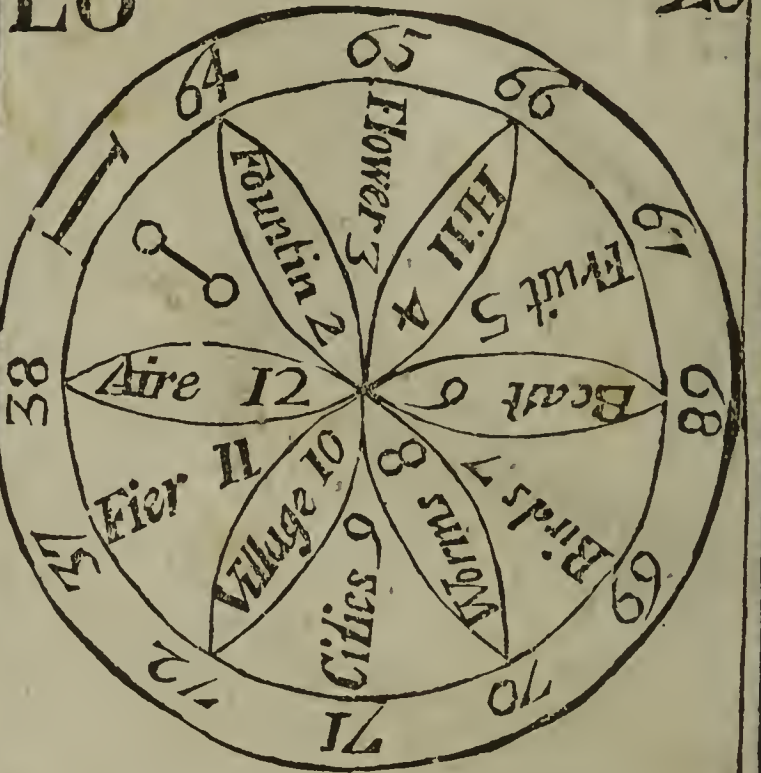 LO
I
64
65
66
67
68
69
70
71
72
37
38
Fountin 2
Flower 3
Hill 4
Fruit 5
Beast 6
Birds 7
Worms 8
Cities 9
Village 10
Fier 11
Aire 12